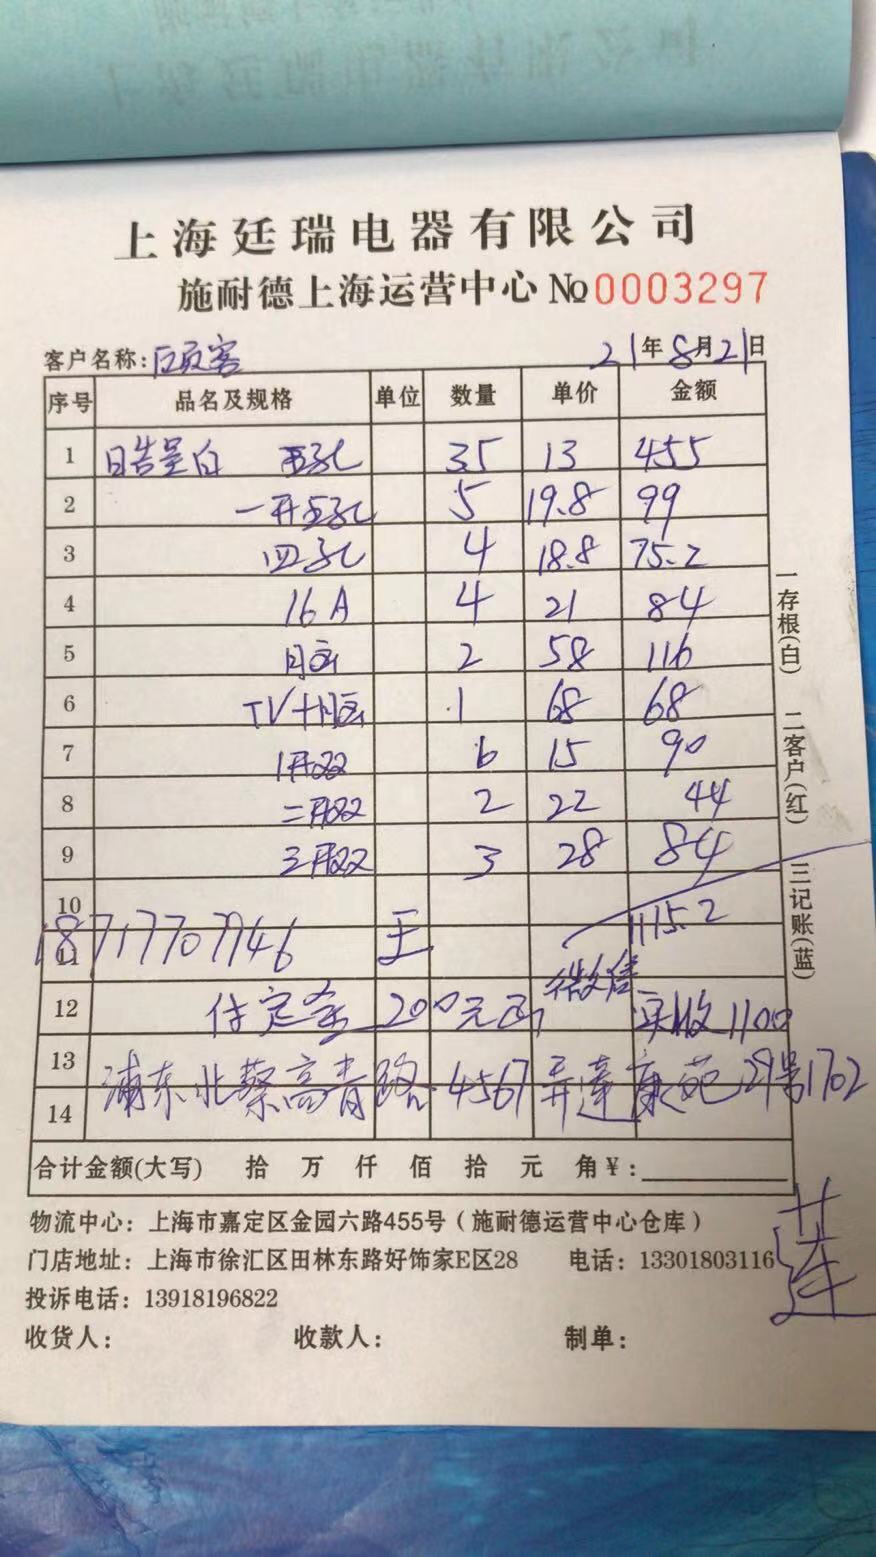 上海廷瑞电器有限公司
施耐德上海运营中心 No 0003297
客户名称: 顾客 21年8月21日
序号 品名及规格 单位 数量 单价 金额
1 皓呈白 五孔 35 13 455
2 一开五孔 5 19.8 99
3 四孔 4 18.8 75.2
4 16A 4 21 84
5 电脑 2 58 116
6 TV+电脑 1 68 68
7 1开双 6 15 90
8 二开双 2 22 44
9 三开双 3 28 84
10 1115.2
11 18717707946 王
12 付定金 200元正 微信 实收1100
13 浦东北蔡高青路4567弄莲康苑29号1702
14
合计金额(大写) 拾 万 仟 佰 拾 元 角¥:
一存根(白) 二客户(红) 三记账(蓝)
物流中心: 上海市嘉定区金园六路455号(施耐德运营中心仓库)
门店地址: 上海市徐汇区田林东路好饰家E区28 电话: 13301803116
莲
投诉电话: 13918196822
收货人: 收款人: 制单: